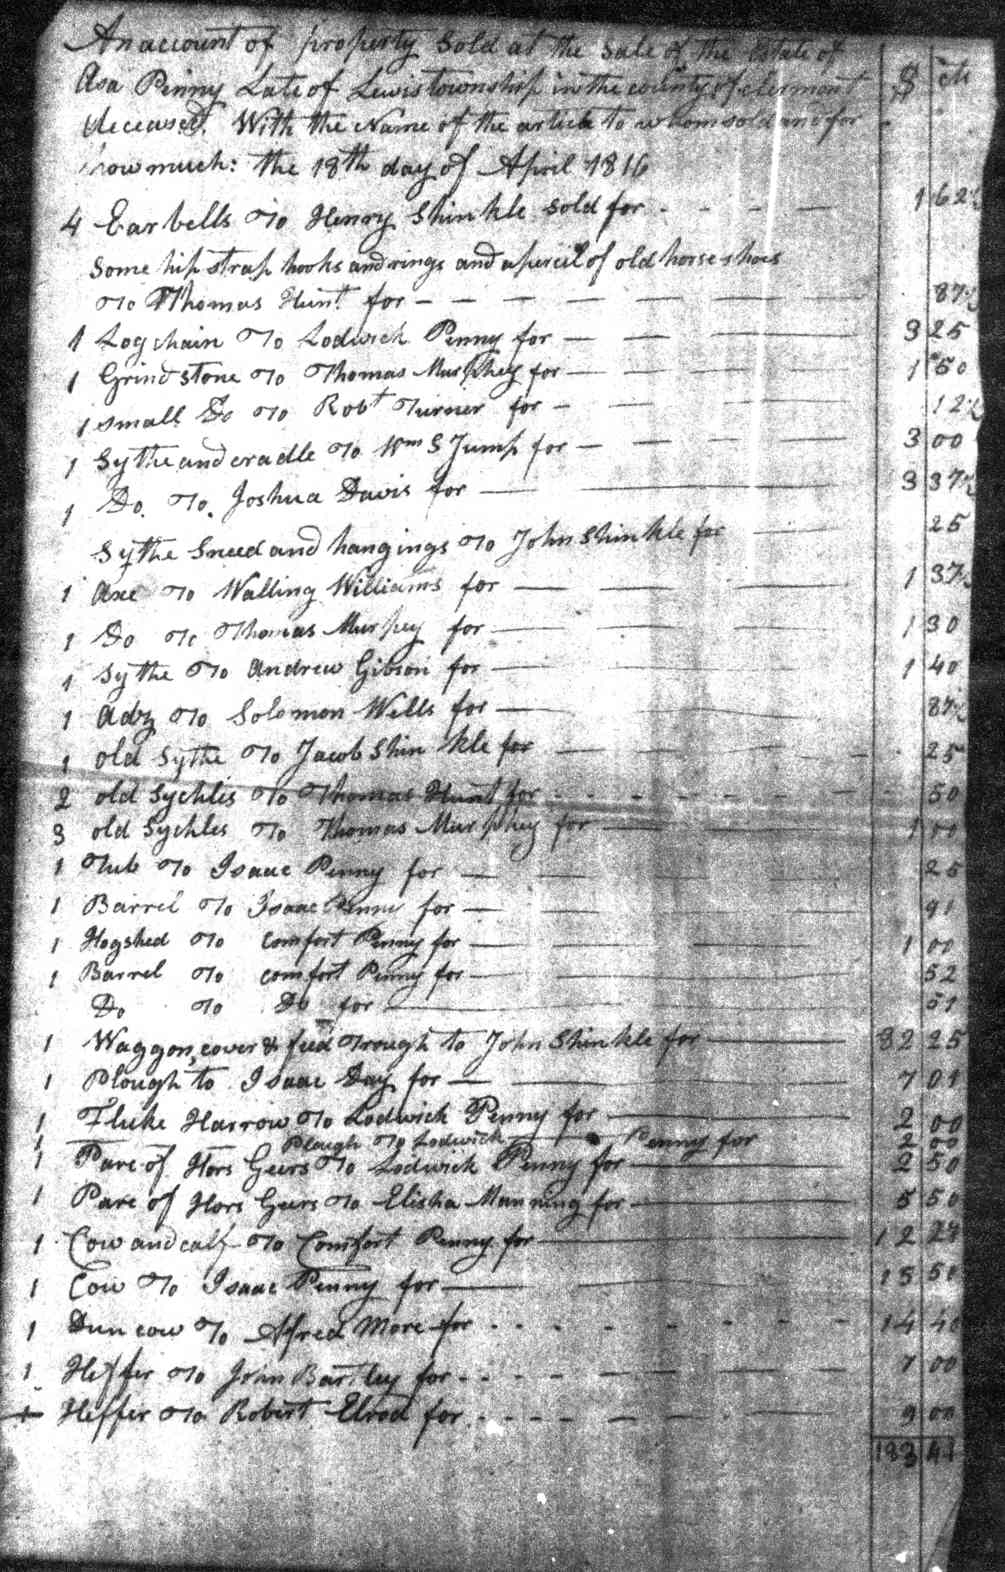 An account of property Sold at the Sale of the Estate of $ cts
Asa Penny Late of Lewistownship in the county of clermont
deceased. With the Name of the article to whom sold and for
how much: the 18th day of April 1816
4 Ear bells To Henry Shinkle sold for 1 62½
Some hip strap hooks and rings and a percil of old horse shoes
To Thomas Hunt for 87½
1 Log chain To Lodwick Penny for 3 25
1 Grind stone To Thomas Murphey for 1 50
1 small Do To Robt Turner for 12½
1 Sythe and cradle To Wm S Jump for 3 00
1 Do. To. Joshua Davis for 3 37½
Sythe Sneed and hangings To John Shinkle for 25
1 Axe To Walling Williams for 1 37½
1 Do To Thomas Murpey for 1 30
1 Sythe To Andrew Gibson for 1 40
1 Adz To Solomon Wells for 87½
1 old Sythe To Jacob Shinkle for 25
2 old Sychles To Thomas Hunt for 50
3 old Sychles To Thomas Murphey for 1 00
1 Tub To Isaac Penny for 25
1 Barrel To Isaac Penny for 91
1 Hogshed To Comfort Penny for 1 00
1 Barrel To comfort Penny for 52
Do To Do for 51
1 Waggon, cover & feed Trough to John Shinkle for 82 25
1 Plough to Isaac Day for 7 01
1 Fluke Harrow To Lodwick Penny for 2 00
1 Plough To Lodwick Penny for 2 00
1 Pare of Hors Geers To Lodwick Penny for 2 50
1 Pare of Hors Geers To Elisha Manning for 5 50
1 Cow and calf To Comfort Penny for 12 27
1 Cow To Isaac Penny for 15 50
1 Dun cow To Alfred More for 14 40
1 Heffer To John Bartley for 7 00
1 Heffer To Robert Elrod for 9 00
183 41